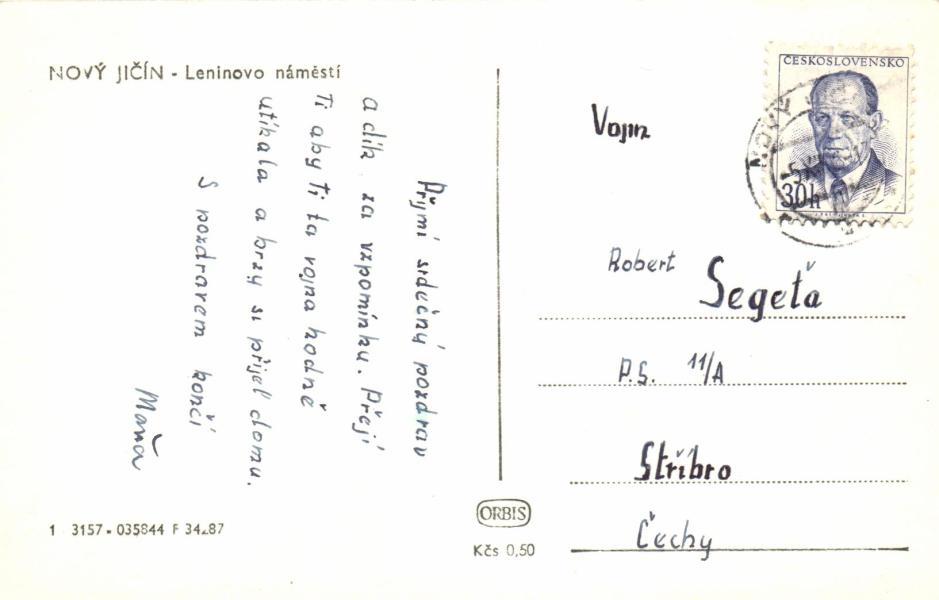 NOVÝ JIČÍN - Leninovo náměstí
Přijmi srdečný pozdrav
a dík za vzpomínku. Přeji
Ti aby Ti ta vojna hodně
utíkala a brzy si přijel domu.
S pozdravem končí
Maňa
1 3157-035844 F 34287
ORBIS
Kčs 0,50
ČESKOSLOVENSKO
30h
NOVÝ
Vojín
Robert Segeťa
P.S. 11/A
Stříbro
Čechy